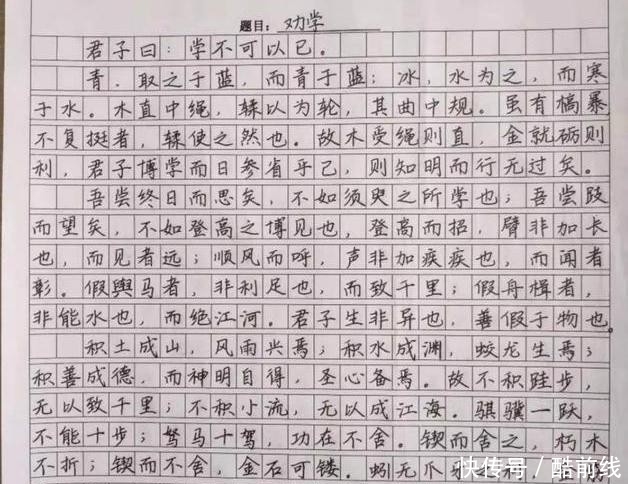 题目：劝学
君子曰：学不可以已。
青，取之于蓝，而青于蓝；冰，水为之，而寒
于水。木直中绳，輮以为轮，其曲中规。虽有槁暴，
不复挺者，輮使之然也。故木受绳则直，金就砺则
利，君子博学而日参省乎己，则知明而行无过矣。
吾尝终日而思矣，不如须臾之所学也；吾尝跂
而望矣，不如登高之博见也，登高而招，臂非加长
也，而见者远；顺风而呼，声非加疾疾也，而闻者
彰。假舆马者，非利足也，而致千里；假舟楫者，
非能水也，而绝江河。君子生非异也，善假于物也。
积土成山，风雨兴焉；积水成渊，蛟龙生焉；
积善成德，而神明自得，圣心备焉。故不积跬步，
无以致千里；不积小流，无以成江海。骐骥一跃，
不能十步；驽马十驾，功在不舍。锲而舍之，朽木
不折；锲而不舍，金石可镂。蚓无爪牙之利，
快传号／酷前线